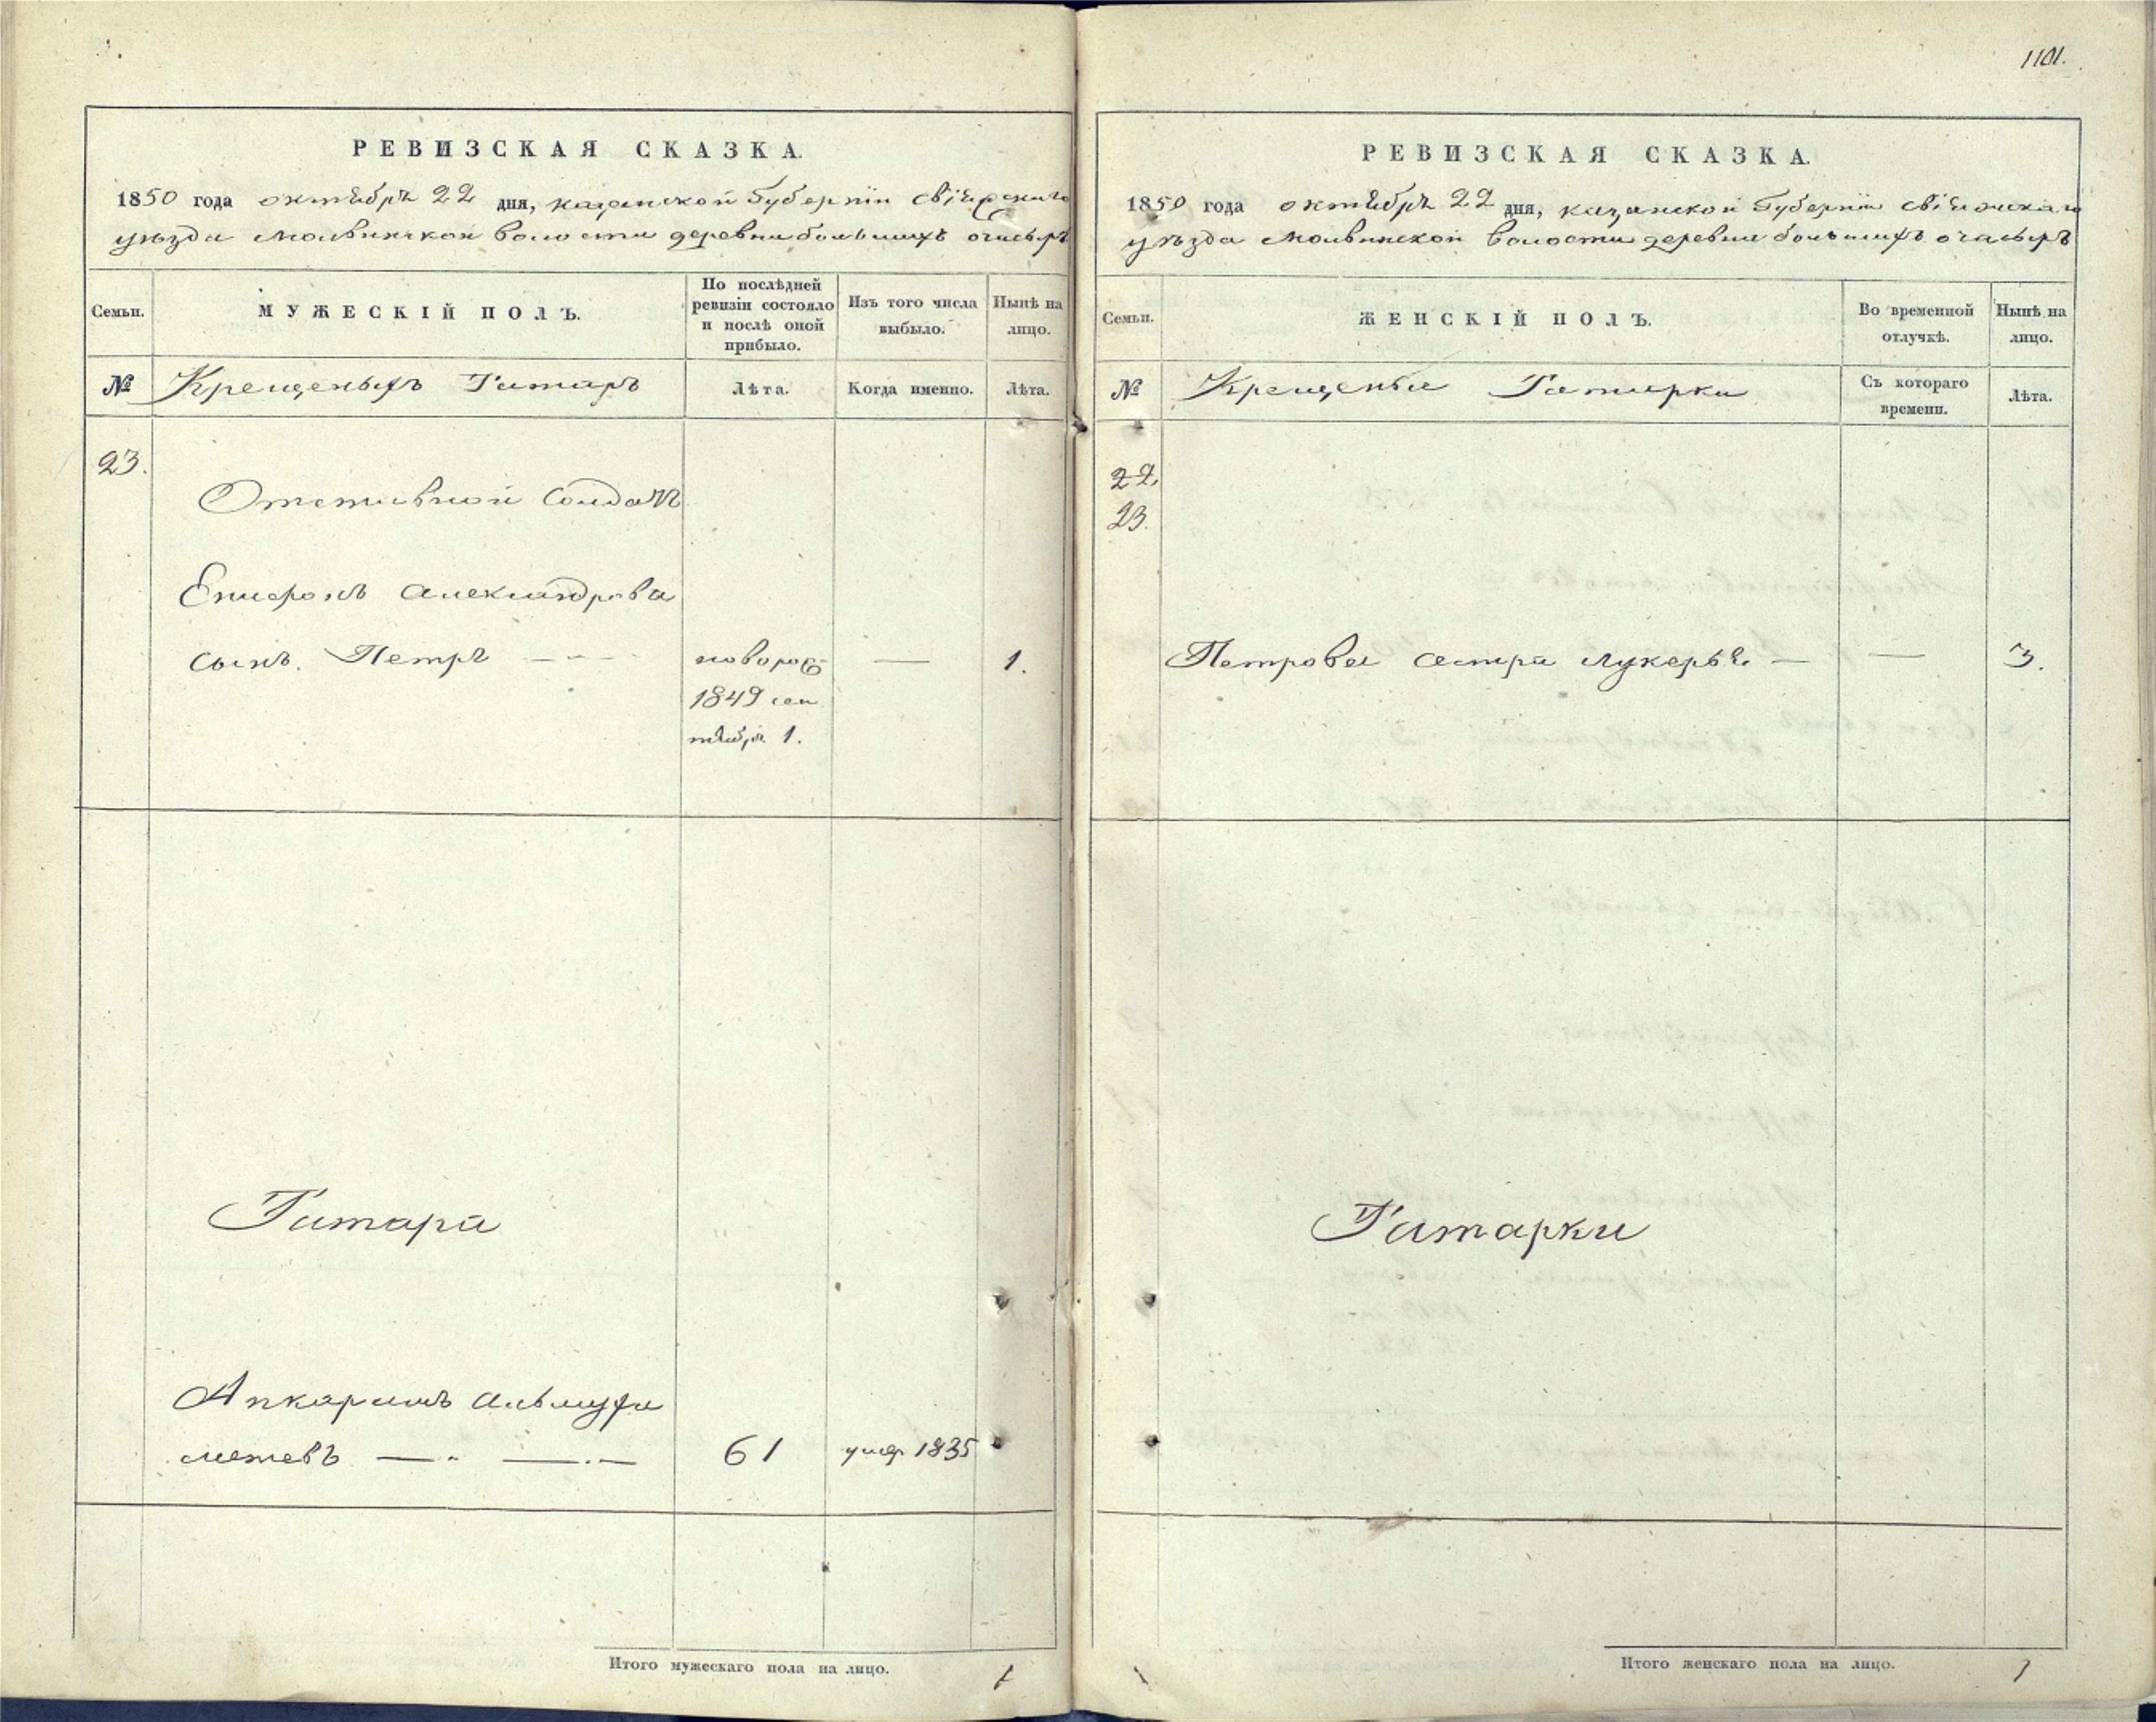 РЕВИЗСКАЯ СКАЗКА.
1850 года октября 22 дня, казанской Губернии свіяжскаго
уѣзда Молвинской волости деревни большихъ очасырь
Семьи.
МУЖЕСКІЙ ПОЛЪ.
По послѣдней
ревизіи состояло
и послѣ оной
прибыло.
Изъ того числа
выбыло.
Нынѣ на
лицо.
№ Крещеныхъ Татаръ
Лѣта.
Когда именно.
Лѣта.
23.
Отставной Солдатъ
александрова
сынъ. Петръ — — новорож — 1.
1849 сен
тября 1.
Татара
Апкаримъ
метевъ — — 61 умер 1835
Итого мужескаго пола на лицо. 1
1101.
РЕВИЗСКАЯ СКАЗКА.
1850 года октября 22 дня, казанской Губернии свіяжскаго
уѣзда Молвинской волости деревни большихъ очасырь
Семьи.
ЖЕНСКІЙ ПОЛЪ.
Во временной
отлучкѣ.
Нынѣ на
лицо.
№ Крещеные Татарки
Съ котораго
времени.
Лѣта.
22.
23.
Петрова сестра лукерья — — 3.
Татарки
Итого женскаго пола на лицо. 1